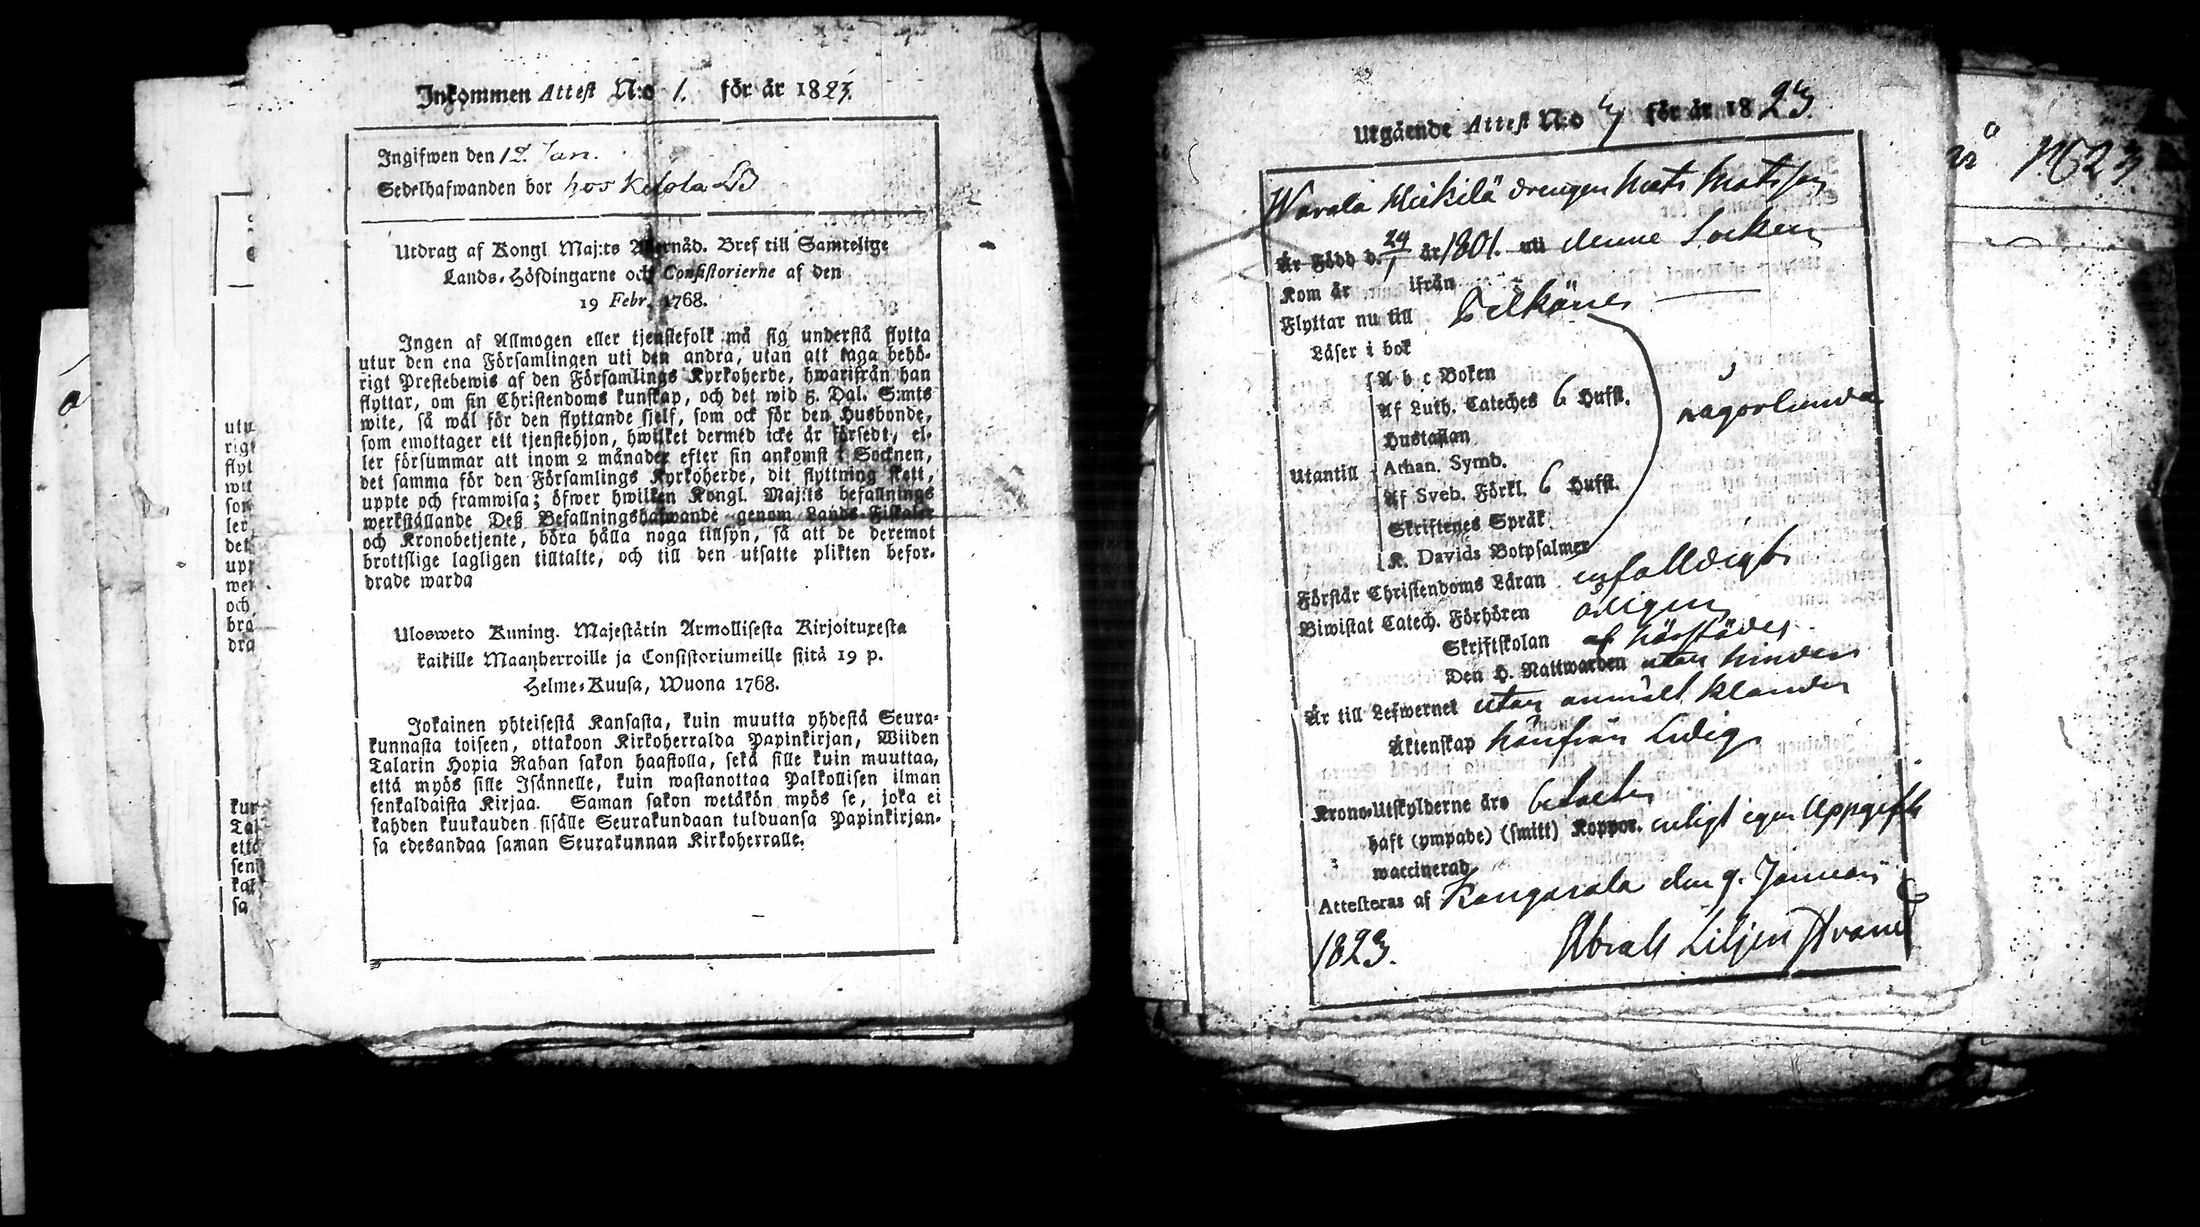 Inkommen Attest N:o 1. för år 1823.
Ingifwen den 12 Jan.
Sedelhafwanden bor hos Ketola
Utdrag af Kongl Maj:ts Allernåd. Bref till Samtelige
Lands-Höfdingarne och Consistorierne af den
19 Febr. 1768.
Ingen af Allmogen eller tjenstefolk må sig understå flytta
utur den ena Församlingen uti den andra, utan att taga behö-
rigt Prestebewis af den Församlings Kyrkoherde, hwarifrån han
flyttar, om sin Christendoms kunskap, och det wid 5. Dal. S:mts
wite, så wäl för den flyttande sjelf, som ock för den Husbonde,
som emottager ett tjenstehjon, hwilket dermed icke är försedt, el-
ler försummar att inom 2 månader efter sin ankomst i Socknen,
det samma för den Församlings Kyrkoherde, dit flyttning skett,
uppte och framwisa; öfwer hwilken Kongl. Maj:ts befallnings
werkställande Deß Befallningshafwande genom Lands-Fiskaler
och Kronobetjente, böra hålla noga tillsyn, så att de deremot
brottslige lagligen tilltalte, och till den utsatte plikten befor-
drade warda
Ulosweto Kuning. Majestätin Armollisesta Kirjoituxesta
kaikille Maanherroille ja Consistoriumeille siitä 19 p.
Helme-Kuusa, Wuona 1768.
Jokainen yhteisestä Kansasta, kuin muutta yhdestä Seura-
kunnasta toiseen, ottakoon Kirkoherralda Papinkirjan, Wiiden
Talarin Hopia Rahan sakon haastolla, sekä sille kuin muuttaa,
että myös sille Isännelle, kuin wastanottaa Palkollisen ilman
senkaldaista Kirjaa. Saman sakon wetäkön myös se, joka ei
kahden kuukauden sisälle Seurakundaan tulduansa Papinkirjan-
sa edesandaa saman Seurakunnan Kirkoherralle.
Utgående Attest N:o för år 1823.
Warala Heikilä drengen Mats Matsson
Är Född d. 24/1 år 1801. uti denne Socken
Kom år ifrån
Flyttar nu till Pelkäne
Läser i bok
A b c Boken
Af Luth. Cateches 6 Hufst. någorlunda
Hustaflan
Utantill Athan. Symb.
Af Sveb. Förkl. 6 Hufst.
Skriftenes Språk
K. Davids Botpsalmer
Förstår Christendoms Läran enfalldigt
Biwistat Catech. Förhören årligen
Skriftskolan af
Den H. Nattwarden utan hinder
Är till Lefwernet utan anmält klander
Äktenskap härifrån Ledig
Krono-Utskylderne äro betalte
haft (ympade) (smitt) Koppor. enligt egen Uppgift
waccinerad
Attesteras af Kangasala den 9. Januari
1823. Abrah Liljenstrand